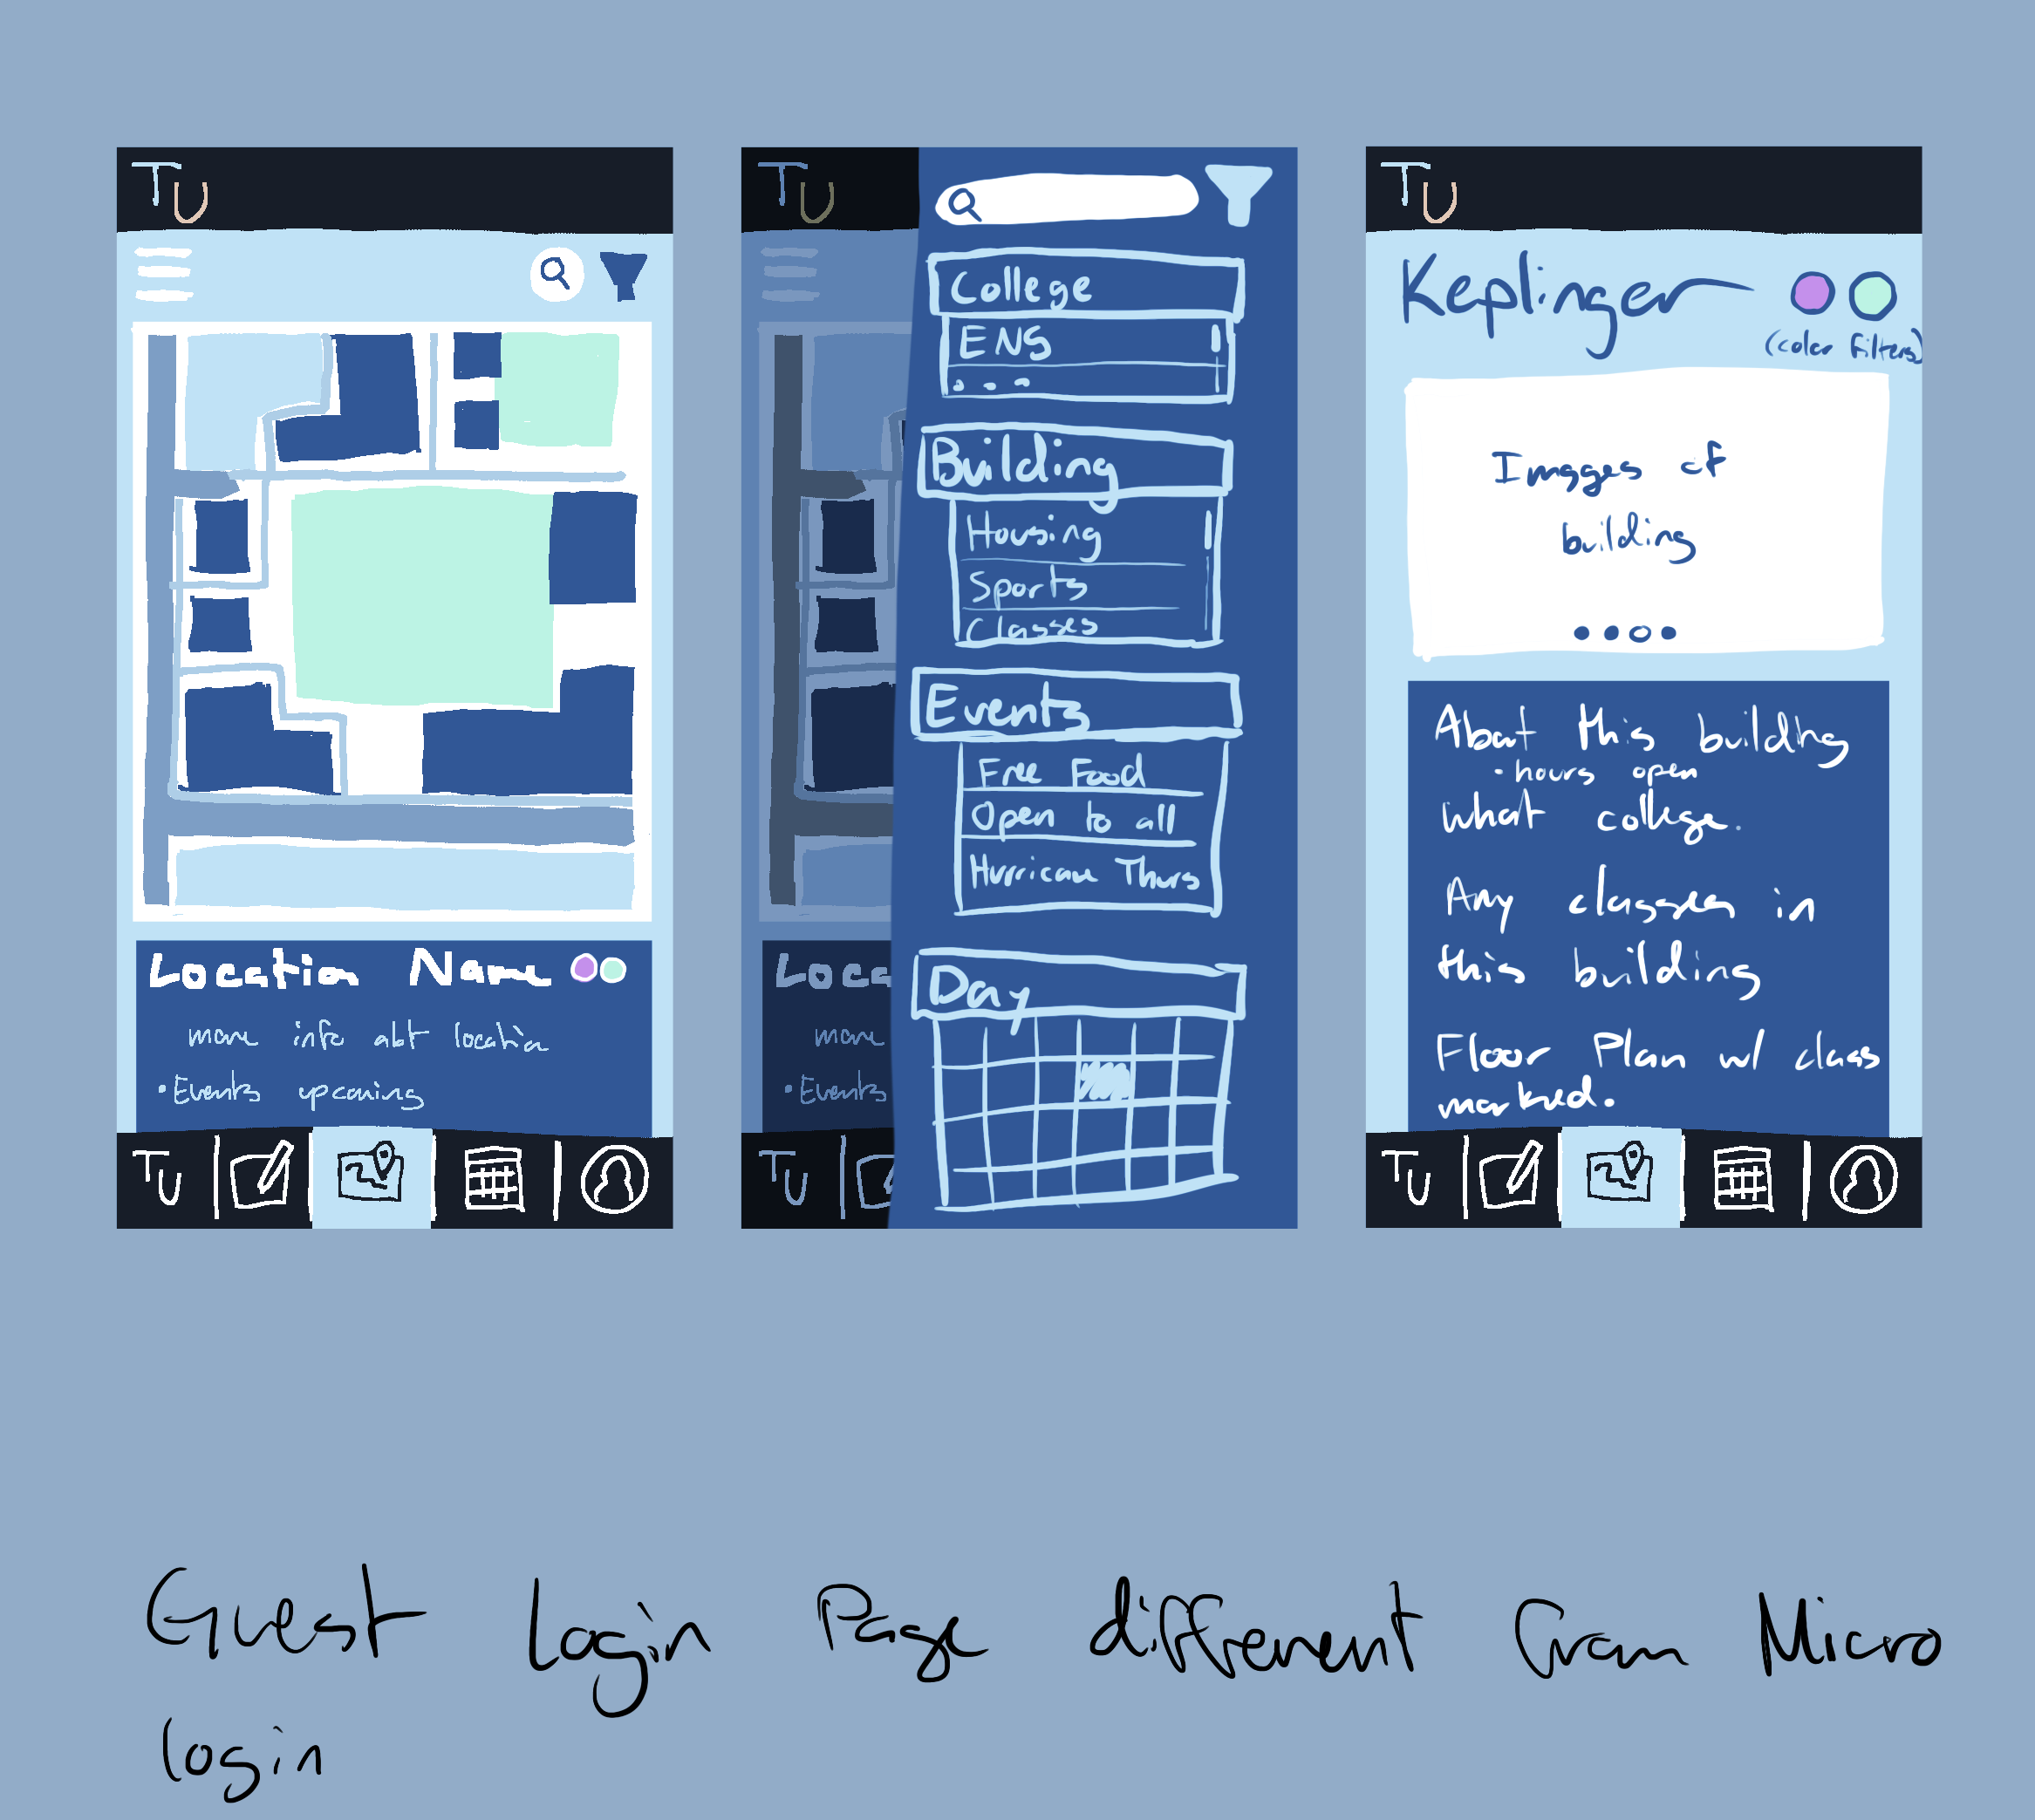 TU
Location Name
more info abt location
• Events upcoming
TU
TU
College
ENS
...
Building
Housing
Sports
Classes
Events
Free Food
Open to all
Hurricane Thurs
Day
Loca
more
• Events
TU
TU
Keplinger
(color filters)
Images of
building
About this building
• hours open
what college.
Any classes in
this building
Floor Plan w/ class
marked.
TU
Guest Login Page different from Micro
login